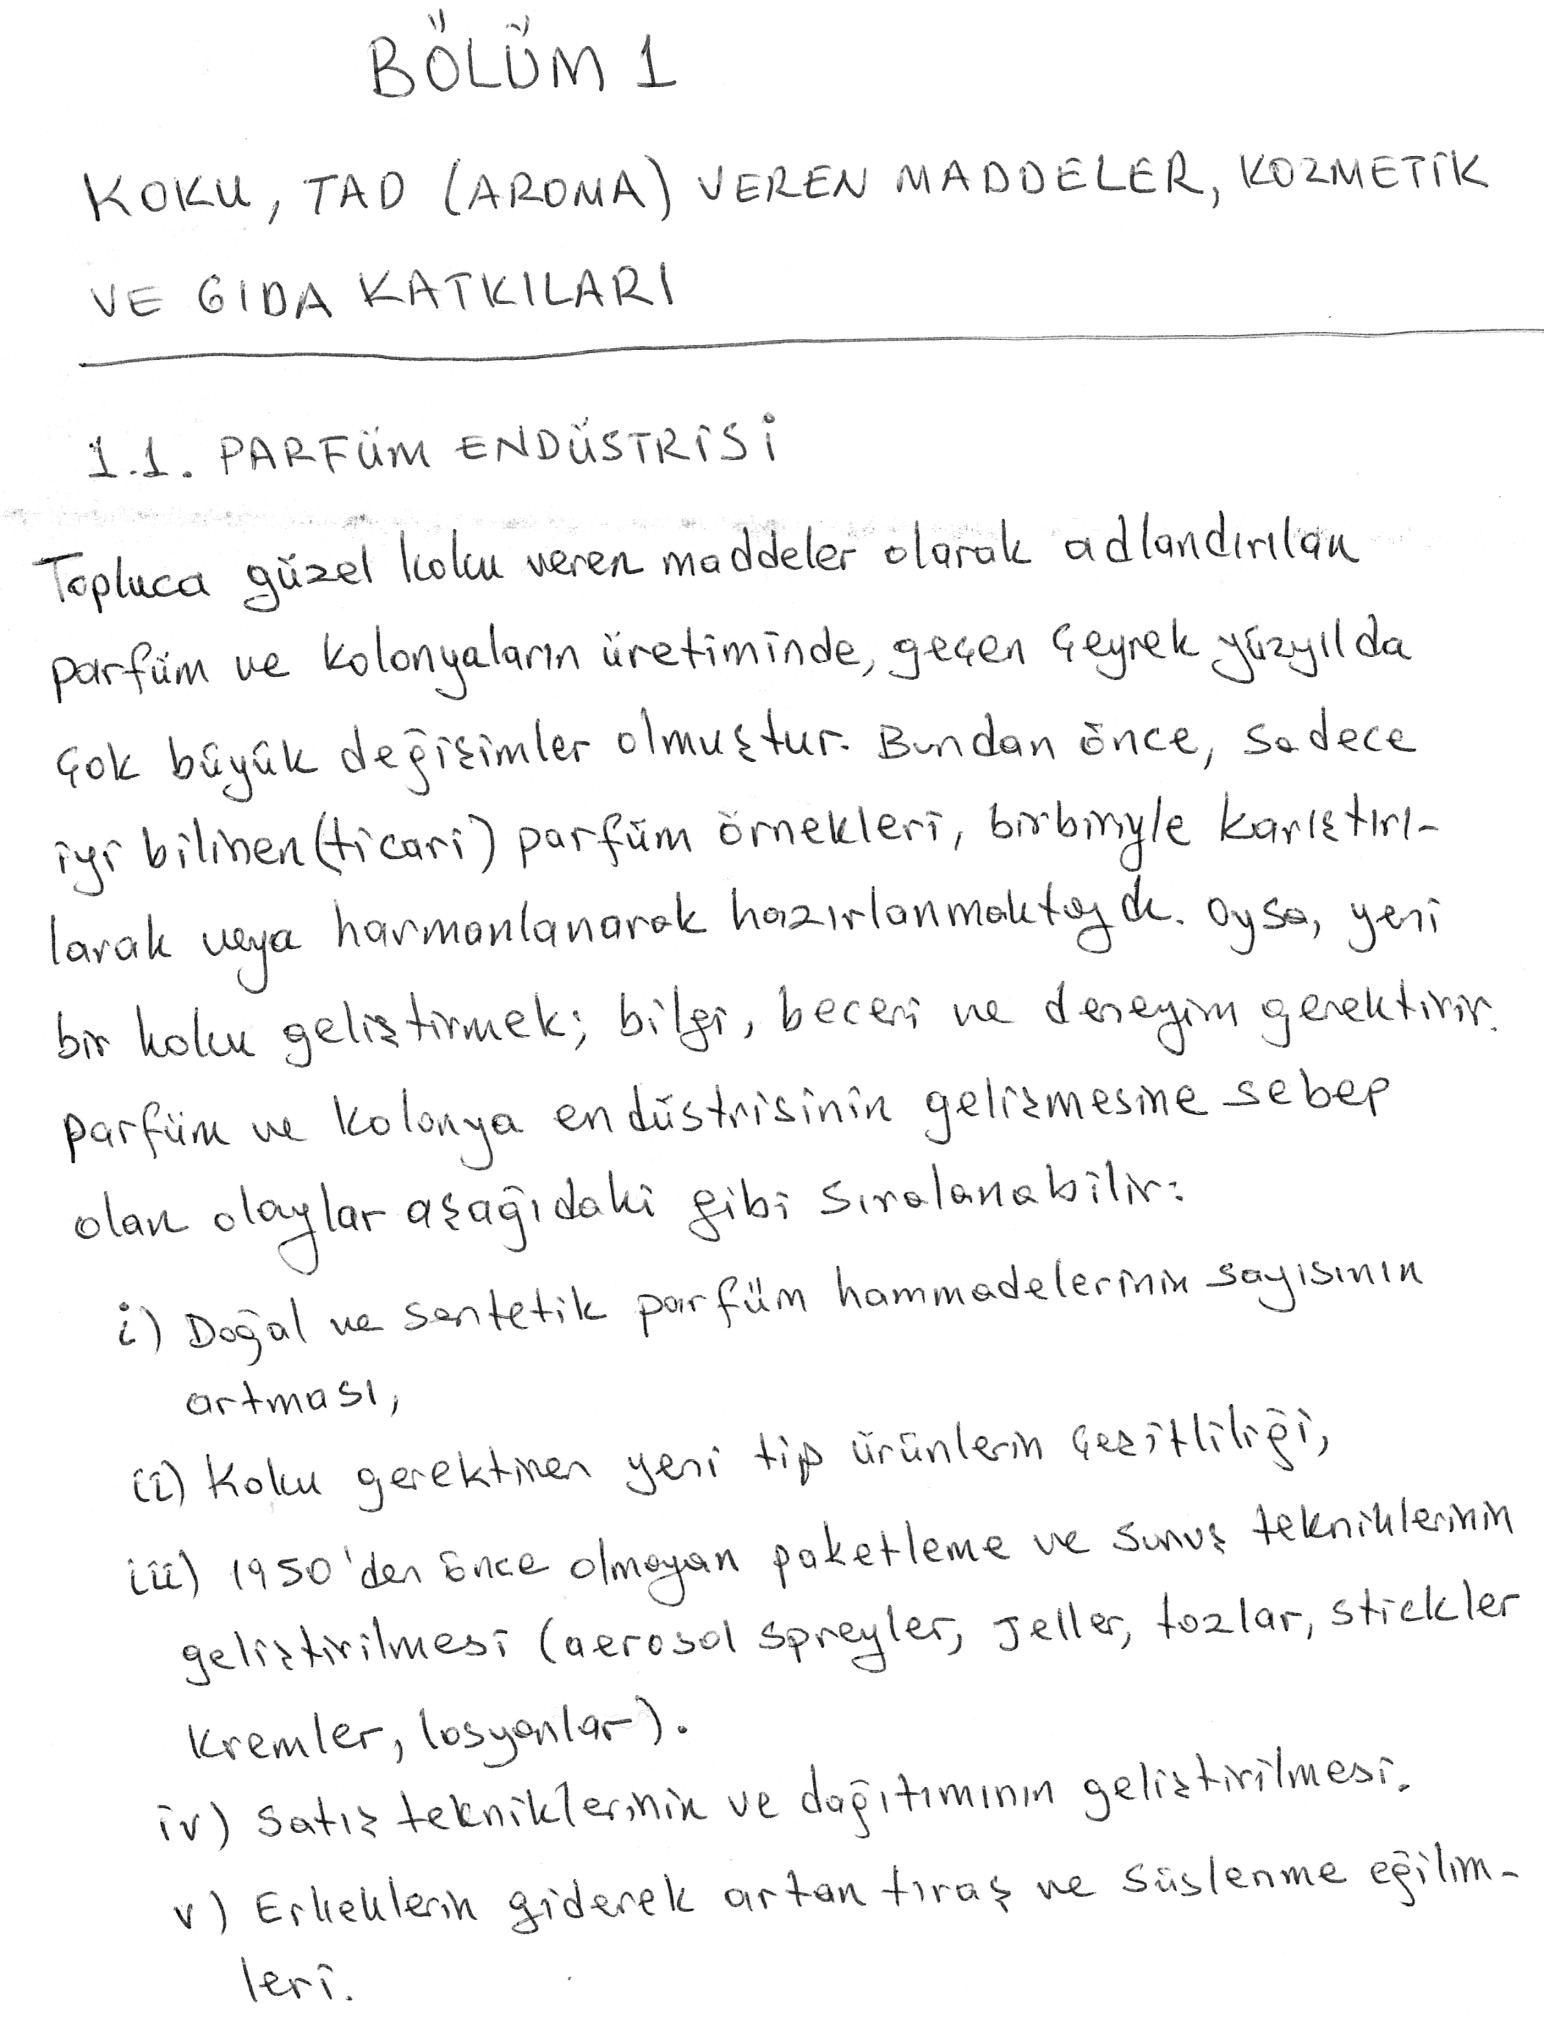 BÖLÜM 1
KOKU, TAD (AROMA) VEREN MADDELER, KOZMETİK
VE GIDA KATKILARI
1.1. PARFÜM ENDÜSTRİSİ
Topluca güzel koku veren maddeler olarak adlandırılan
parfüm ve kolonyaların üretiminde, geçen çeyrek yüzyılda
çok büyük değişimler olmuştur. Bundan önce, sadece
iyi bilinen (ticari) parfüm örnekleri, birbiriyle karıştırı-
larak veya harmanlanarak hazırlanmaktaydı. Oysa, yeni
bir koku geliştirmek; bilgi, beceri ve deneyim gerektirir.
parfüm ve kolonya endüstrisinin gelişmesine sebep
olan olaylar aşağıdaki gibi sıralanabilir:
i) Doğal ve sentetik parfüm hammadelerinin sayısının
artması,
ii) Koku gerektiren yeni tip ürünlerin çeşitliliği,
iii) 1950'den önce olmayan paketleme ve sunuş tekniklerinin
geliştirilmesi (aerosol spreyler, Jeller, tozlar, stickler
kremler, losyonlar).
iv) Satış tekniklerinin ve dağıtımının geliştirilmesi.
v) Erkeklerin giderek artan tıraş ve süslenme eğilim-
leri.